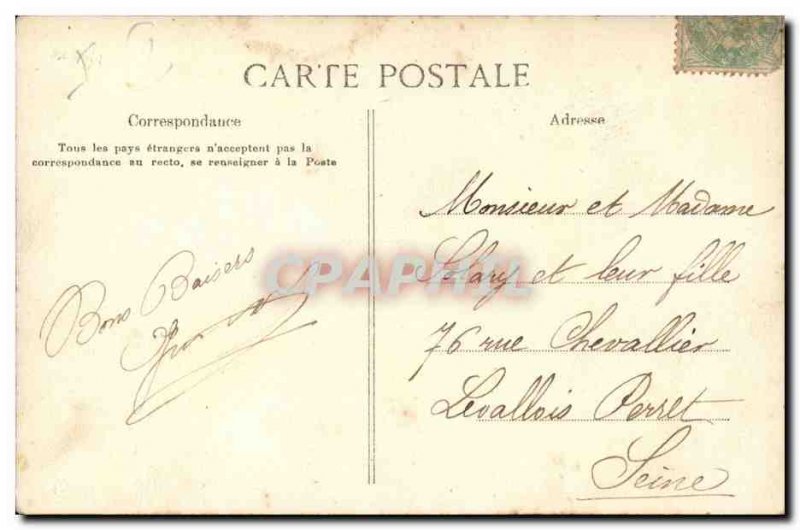 CARTE POSTALE
Correspondance
Tous les pays étrangers n'acceptent pas la
correspondance au recto, se renseigner à la Poste
Bons Baisers
Adresse
Monsieur et Madame
Solary et leur fille
76 rue Chevallier
Levallois Perret
Seine
CPAPHIL